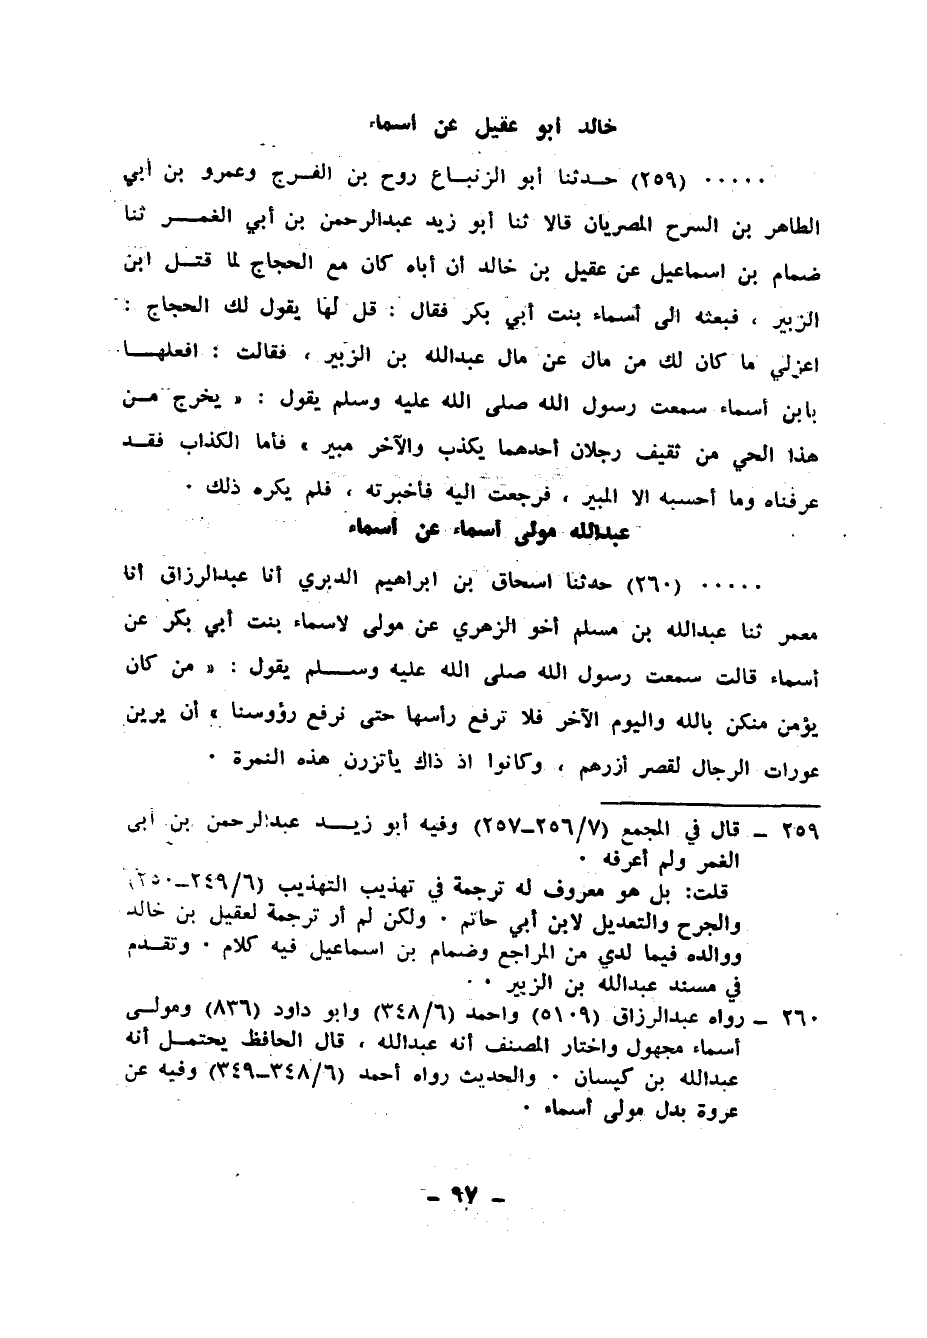 خالد أبو عقيل عن أسماء
..... (٢٥٩) حـدثنا أبو الزنبـاع روح بن الفـرج وعمرو بن أبي
الطاهر بن السرح المصريان قالا ثنا أبو زيد عبدالرحمن بن أبي الغمـــر ثنا
ضمام بن اسماعيل عن عقيل بن خالد أن أباه كان مع الحجاج لما قتـل ابن
الزبير ، فبعثه الى أسماء بنت أبي بكر فقال : قل لها يقول لك الحجاج :
اعزلي ما كان لك من مال عن مال عبدالله بن الزبير ، فقالت : افعلهـا
يابن أسماء سمعت رسول الله صلى الله عليه وسلم يقول : « يخرج مـن
هذا الحي من ثقيف رجلان أحدهما يكذب والآخر مبير » فأما الكذاب فقـد
عرفناه وما أحسبه الا المبير ، فرجعت اليه فأخبرته ، فلم يكره ذلك .
عبدالله مولى أسماء عن أسماء
..... (٢٦٠) حدثنا اسحاق بن ابراهيم الدبري أنا عبدالرزاق أنا
معمر ثنا عبدالله بن مسلم أخو الزهري عن مولى لاسماء بنت أبي بكر عن
أسماء قالت سمعت رسول الله صلى الله عليه وســـلم يقول : « من كان
يؤمن منكن بالله واليوم الآخر فلا ترفع رأسها حتى نرفع رؤوسنا » أن يرين
عورات الرجال لقصر أزرهم ، وكانوا اذ ذاك يأتزرن هذه النمرة .
٢٥٩ ـ قال في المجمع (٢٥٦/٧ـ٢٥٧) وفيه أبو زيــد عبدالرحمن بن أبى
الغمر ولم أعرفه .
قلت: بل هو معروف له ترجمة في تهذيب التهذيب (٢٤٩/٦ـ٢٥٠)
والجرح والتعديل لابن أبي حاتم . ولكن لم أر ترجمة لعقيل بن خالد
ووالده فيما لدي من المراجع وضمام بن اسماعيل فيه كلام . وتقـدم
في مسند عبدالله بن الزبير . .
٢٦٠ ـ رواه عبدالرزاق (٥١٠٩) واحمد (٣٤٨/٦) وابو داود (٨٣٦) ومولـى
أسماء مجهول واختار المصنف أنه عبدالله ، قال الحافظ يحتمـل أنه
عبدالله بن كيسان . والحديث رواه أحمد (٣٤٨/٦ـ٣٤٩) وفيه عن
عروة بدل مولى أسماء .
ـ ٩٧ ـ